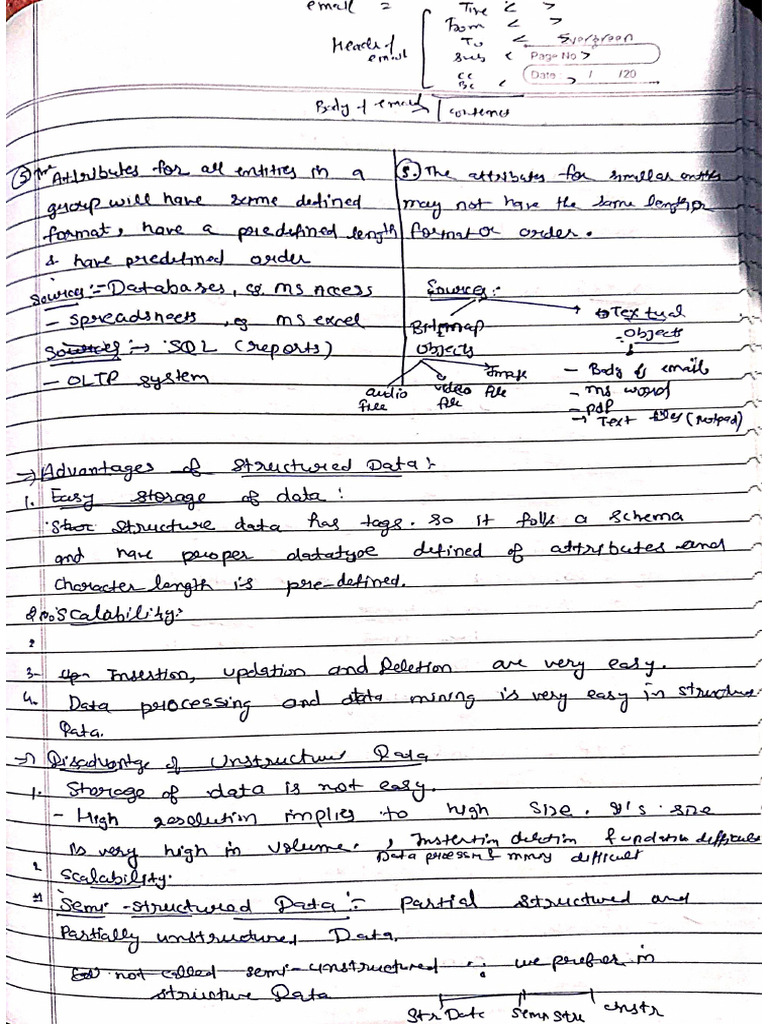 email = Time < >
From < >
To < Evergreen
Sub < Page No >
CC Date / /20
BC < >
Header of email
Body of email | contents
⑤ Attributes for all entities in a
group will have same defined
format, have a predefined length
& have predefined order
Sources:- Databases, eg MS Access
- Spreadsheets, eg MS excel
Sources :→ SQL (reports)
- OLTP system
⑤. The attributes for similar entities
may not have the same length or
format or order.
Sources:-
Bitmap
Objects
audio file
video file
Image file
→ Textual
Objects
- Body of email
- MS word
- pdf
→ Text files (notpad)
→ Advantages of Structured Data:-
1. Easy storage of data :
Struc structure data has tags. so it folls a schema
and have proper datatype defined of attributes and
character length is pre-defined.
2. Scalability:-
2
3- Up Insertion, updation and Deletion are very easy.
4. Data processing and data mining is very easy in structure
Data.
→ Disadvantge of Unstructure Data
1. Storage of data is not easy.
- High resolution implies to high size. It's size
is very high in volume. , Instertin deletion & updation difficult
Data processin & mining difficult
2 Scalability:
Semi-structured Data :- Partial structured and
Partially unstructured Data.
not called semi-unstructured ∵ we prefer in
structure Data
Str Data Semi Stru Unstr